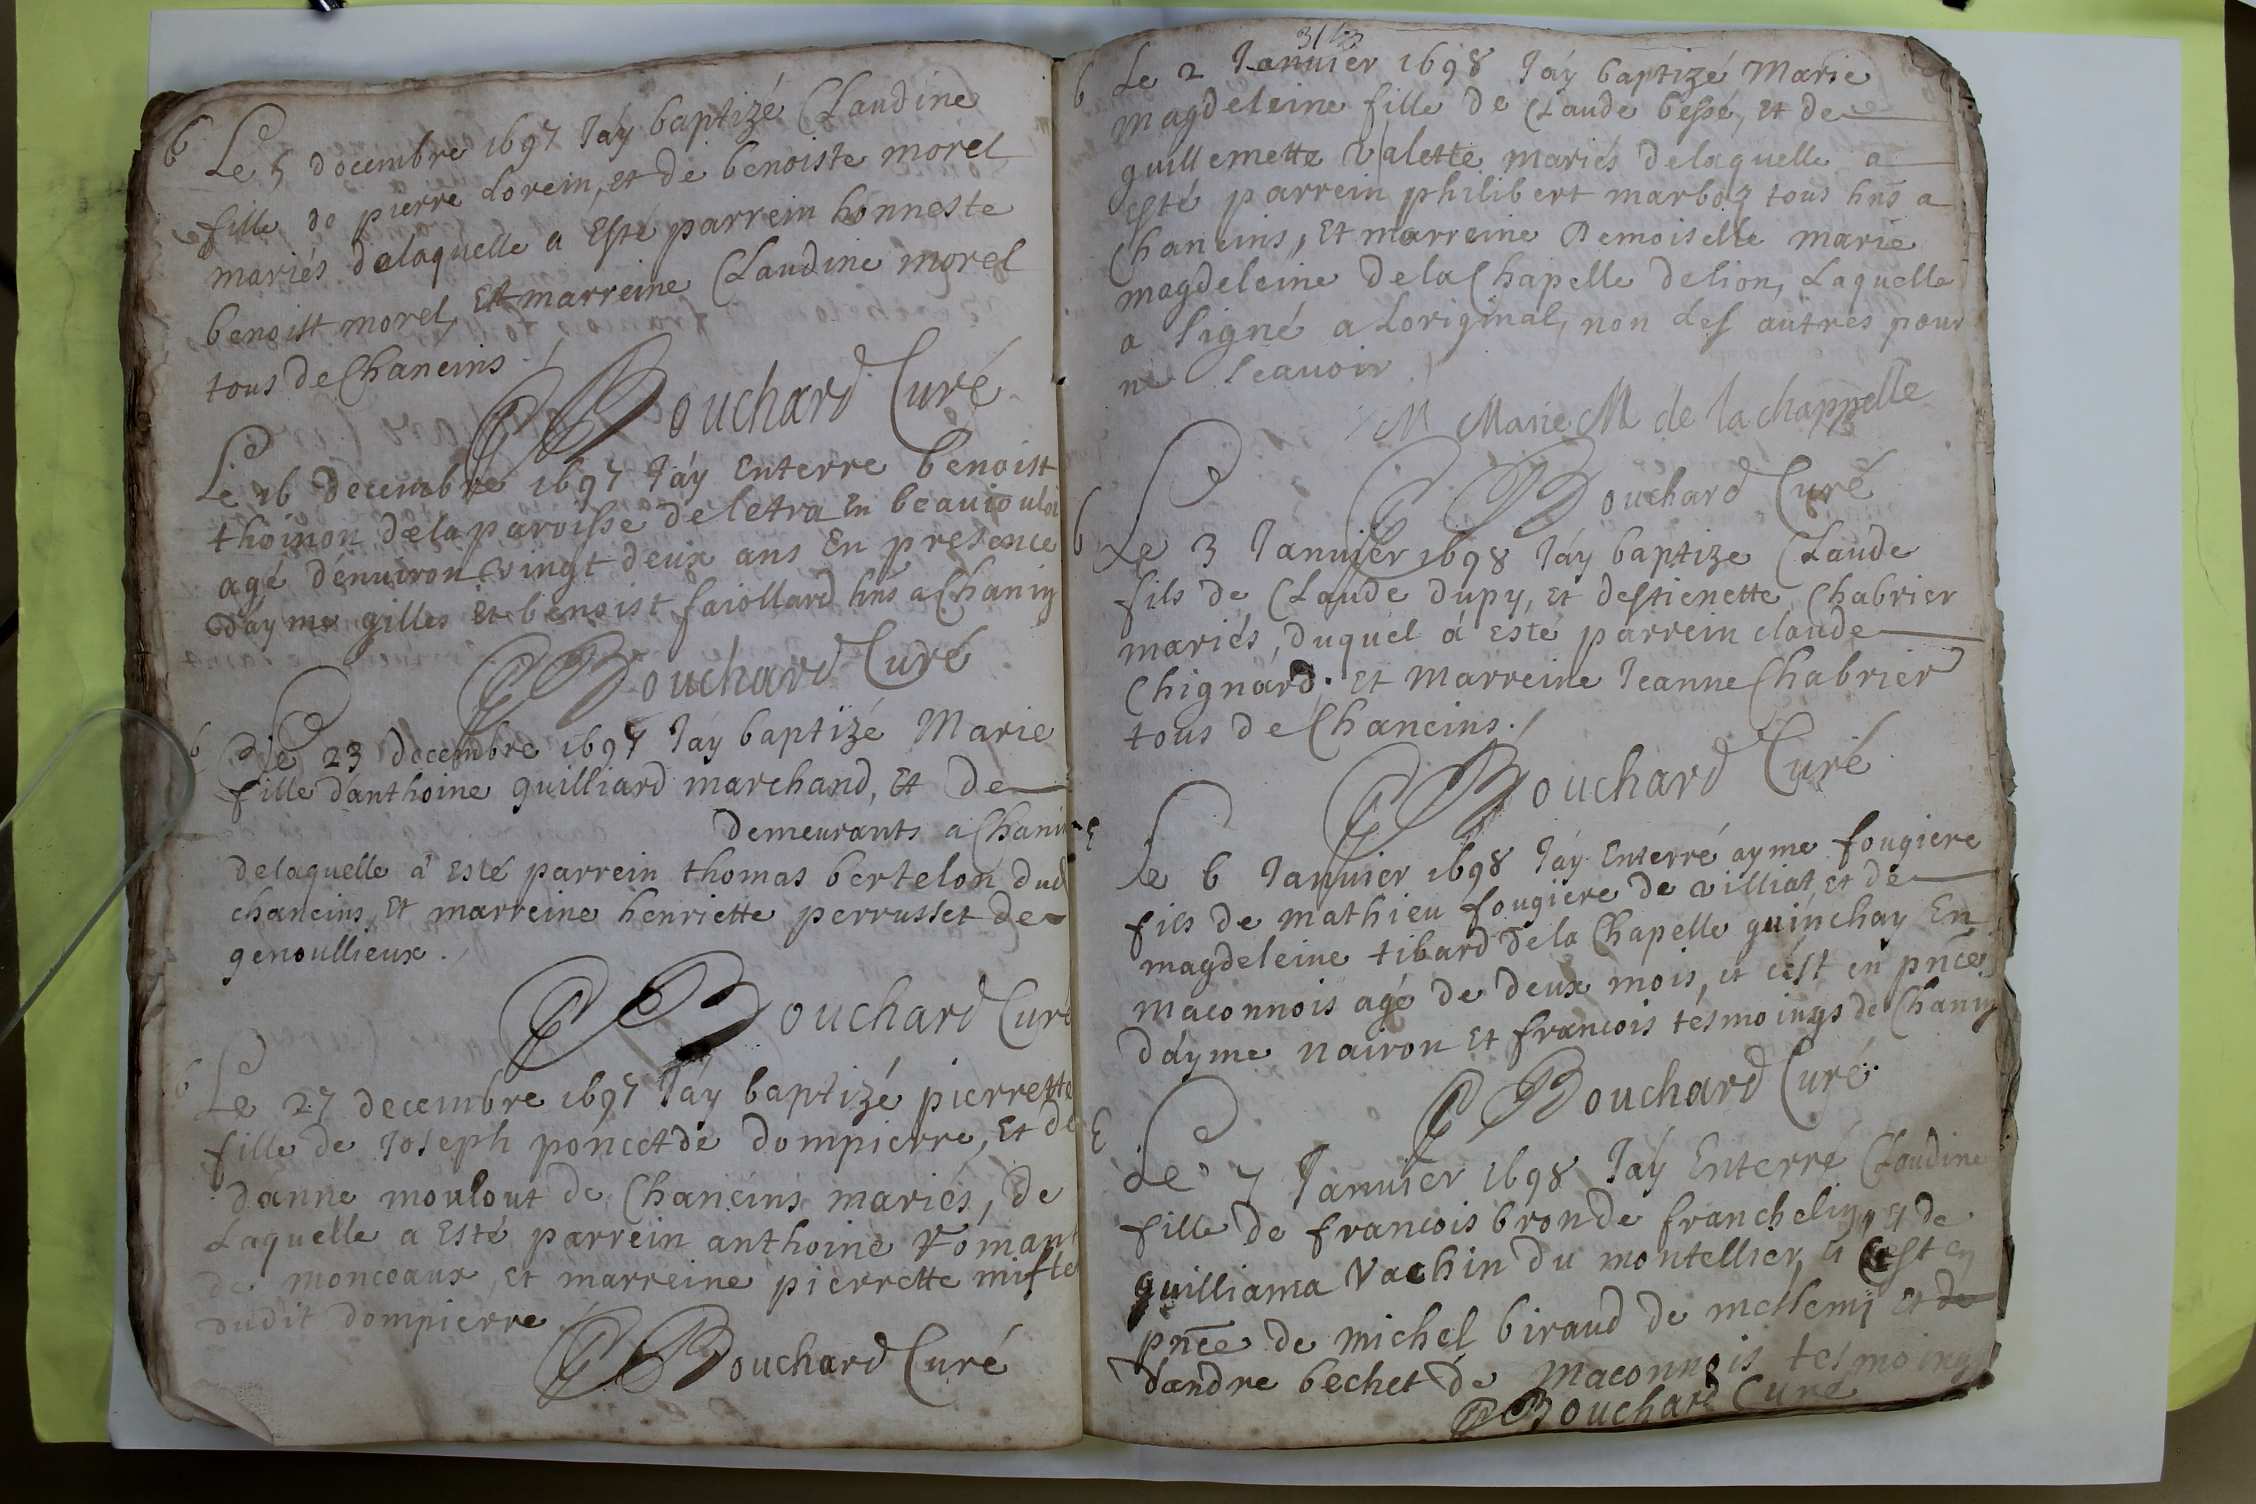 b
Le 5 decembre 1697 Jáy baptizé Claudine
fille de pierre Lorein, et de benoiste morel
mariés delaquelle a Esté parrein honneste
benoist morel, Et marreine Claudine morel
tous de Chaneins
Bouchard Curé
Le 16 decembre 1697 Jáy Enterre benoist
thoinon delaparoisse deletra En beauioulois
agé dénuiron vingt deux ans En presence
dáyme gilles Et benoist faiollard hns a Chanin
Bouchard Curé
b
Le 23 decembre 1697 Jáy baptizé Marie
fille dánthoine guilliard marchand, Et De
Demeurants a Chanin
delaquelle á Esté parrein thomas bertelon dud
chaneins, Et marreine henriette perrusset de
genoullieux.
Bouchard Curé
b
Le 27 decembre 1697 Jáy baptizé pierrette
fille de Joseph poncet de Dompierre, Et de
dánne moulout de Chaneins mariés, de
Laquelle a Esté parrein anthoine Romant
de monceaux, et marreine pierrette
dudit dompierre
Bouchard Curé
b
Le 2 Januier 1698 Jáy baptizé Marie
Magdeleine fille de Claude bessé, Et de
guillemette Valette mariés delaquelle a
esté parrein philibert marboz tous hns a
Chaneins, Et marreine Demoiselle marie
magdeleine dela Chapelle delion, Laquelle
a signé a Loriginal, non Les autres pour
ne Scauoir
M Marie M de la chappelle
Bouchard Curé
b
Le 3 Januier 1698 Jáy baptize Claude
fils de Claude dupy, Et destienette Chabrier
mariés, duquel á Esté parrein claude
Chignard. Et Marreine Jeanne Chabrier
tous de Chaneins.
Bouchard Curé
E
Le 6 Januier 1698 Jáy Enterré ayme fougiere
fils de mathieu fougiere de villiat, et de
magdeleine tibard dela Chapelle guinchay En
maconnois agé de deux mois, et cést en pnce
dáyme nairon Et francois tesmoings de Chanin
Bouchard Curé.
E
Le 7 Januier 1698 Jáy Enterré Claudine
fille de francois bron de franchelin, Et de
guilliama Vachin du montellier, et Cest en
pnce de michel biraud de messemi et de
dandre bechet de maconnois tesmoings
Bouchard Curé